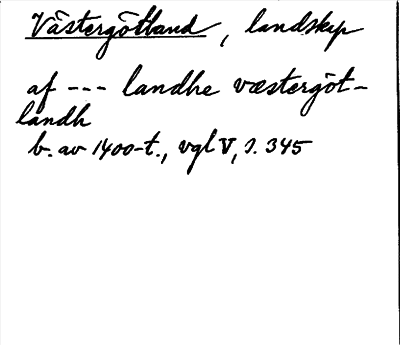 Västergötland, landskap
af --- landhe væstergöt-
landh
b. av 1400-t., vgl V, s. 345